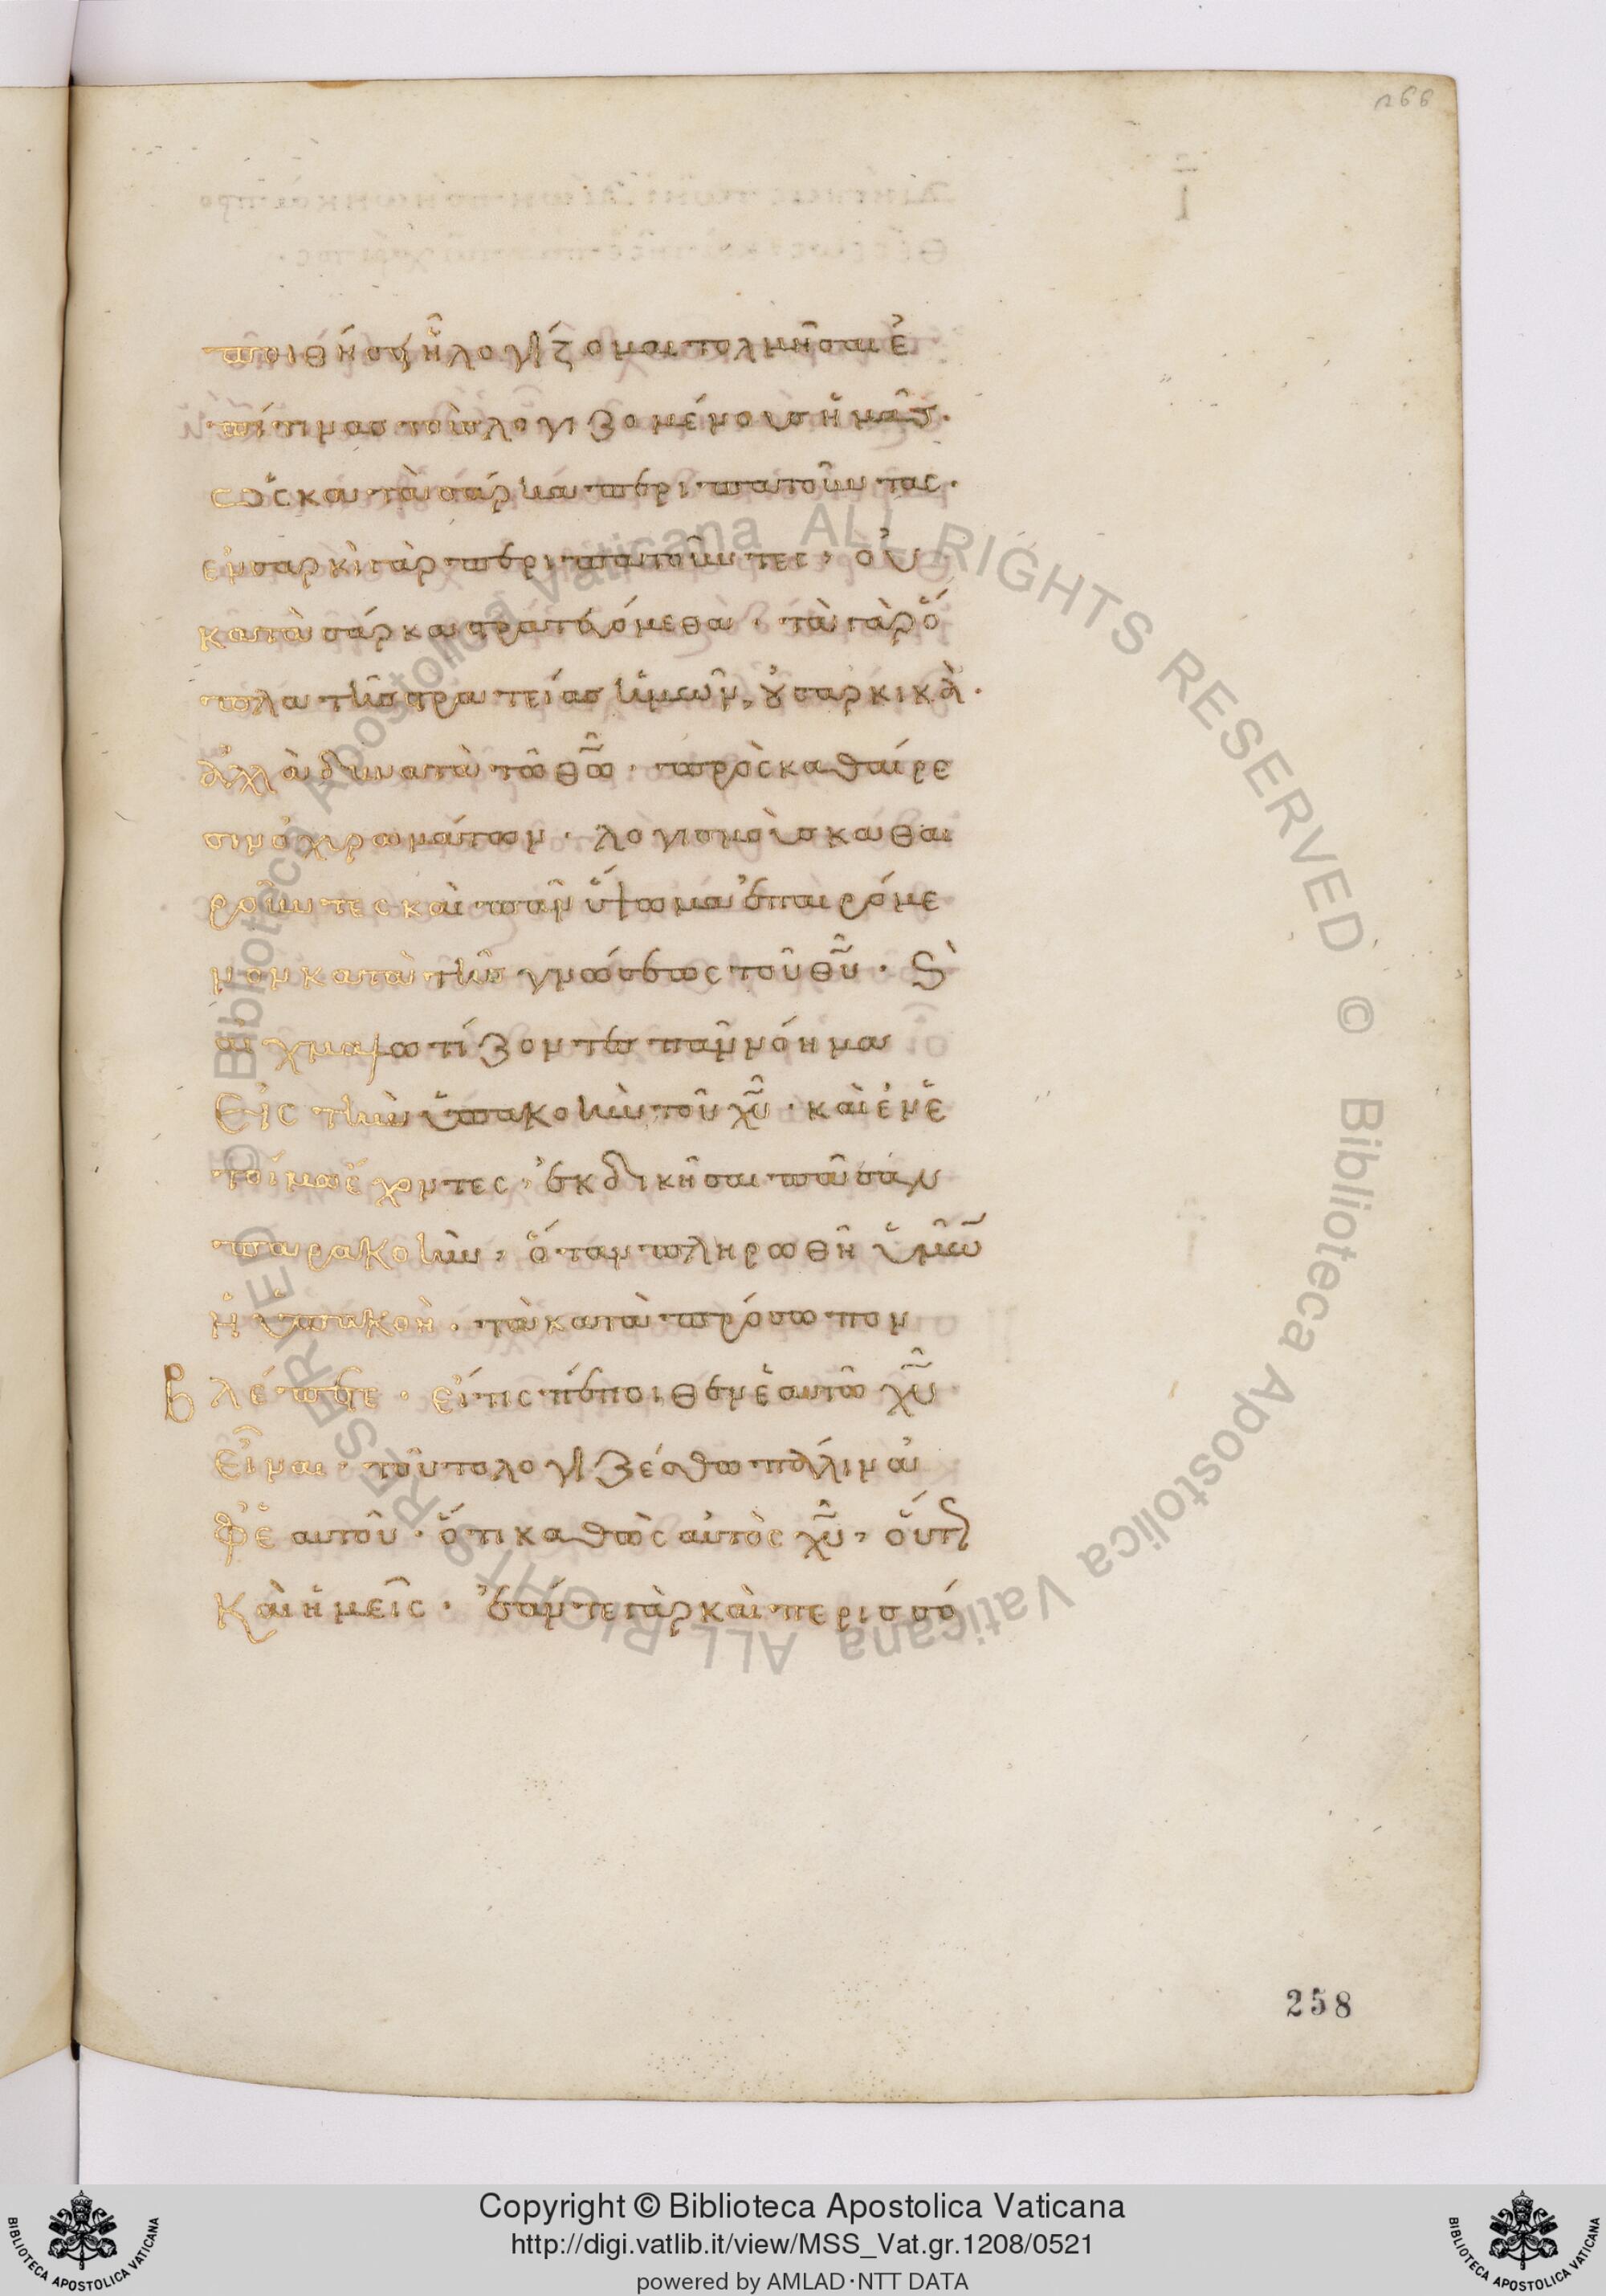 266
ποιθήσει ᾗ λογίζομαι τολμῆσαι ἐ
πί τινας τοὺς λογιζομένους ἡμᾶς·
ὡς κατὰ σάρκα περιπατοῦντας·
ἐν σαρκὶ γὰρ περιπατοῦντες, οὐ
κατὰ σάρκα στρατευόμεθα· τὰ γὰρ ὅ
πλα τῆς στρατείας ἡμῶν, οὐ σαρκικὰ·
ἀλλὰ δυνατὰ τῶ θ̅ω̅· πρὸς καθαίρε
σιν ὀχυρωμάτων· λογισμοὺς καθαι
ροῦντες καὶ πᾶν ὕψωμα ἐπαιρόμε
νον κατὰ τῆς γνώσεως τοῦ θ̅υ̅· καὶ
αἰχμαλωτίζοντες πᾶν νόημα
εἰς τὴν ὑπακοὴν τοῦ χ̅υ̅· καὶ ἐν ἑ
τοίμω ἔχοντες, ἐκδικῆσαι πᾶσαν
παρακοὴν, ὅταν πληρωθῆ ὑμῶν
ἡ ὑπακοὴ· τὰ κατὰ πρόσωπον
βλέπετε· εἴ τις πέποιθεν ἑαυτῶ χ̅υ̅
εἶναι· τοῦτο λογιζέσθω πάλιν ἀ
φ' ἑαυτοῦ· ὅτι καθὼς αὐτὸς χ̅υ̅, οὕτω
καὶ ἡμεῖς· ἐάν τε γὰρ καὶ περισσό
258
© Biblioteca Apostolica Vaticana ALL RIGHTS RESERVED © Biblioteca Apostolica Vaticana ALL RIGHTS RESERVED
Copyright © Biblioteca Apostolica Vaticana
http://digi.vatlib.it/view/MSS_Vat.gr.1208/0521
powered by AMLAD·NTT DATA
BIBLIOTECA APOSTOLICA VATICANA
BIBLIOTECA APOSTOLICA VATICANA